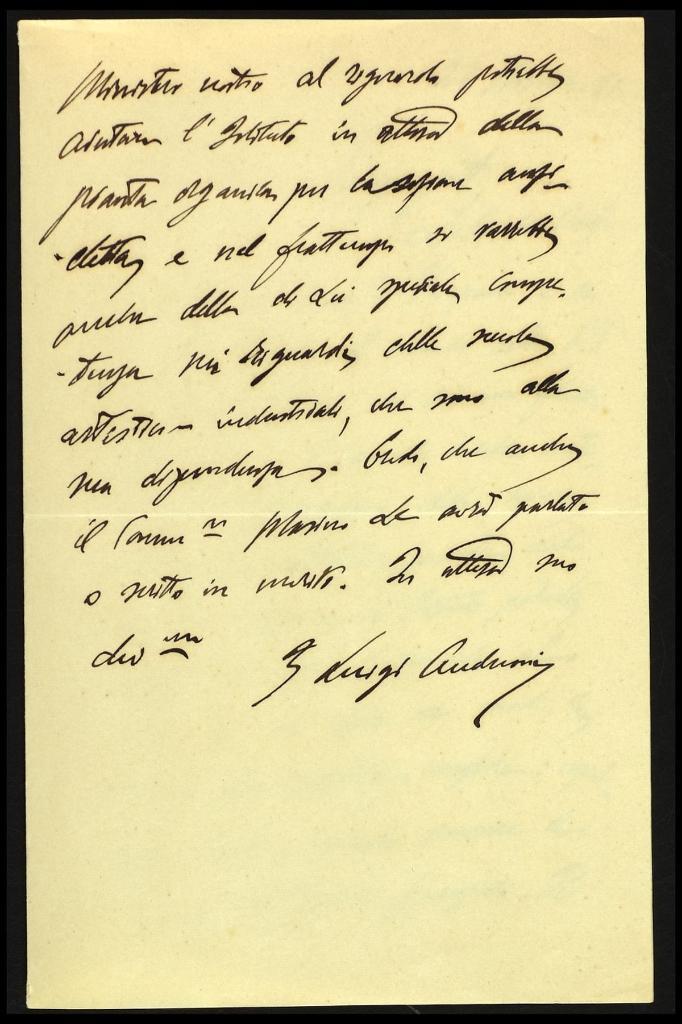 Ministero nostro al riguardo potrebbe
aiutare l'Istituto in attesa della
pianta organica per la sezione anzi-
-detta, e nel frattempo si varrebbe
anche della di Lei speciale compe-
-tenza nei riguardi delle scuole
artistiche industriali, che sono alla
sua dipendenza. Credo, che anche
il Comm re Masino Le avrà parlato
o scritto in merito. In attesa suo
dev mo Luigi